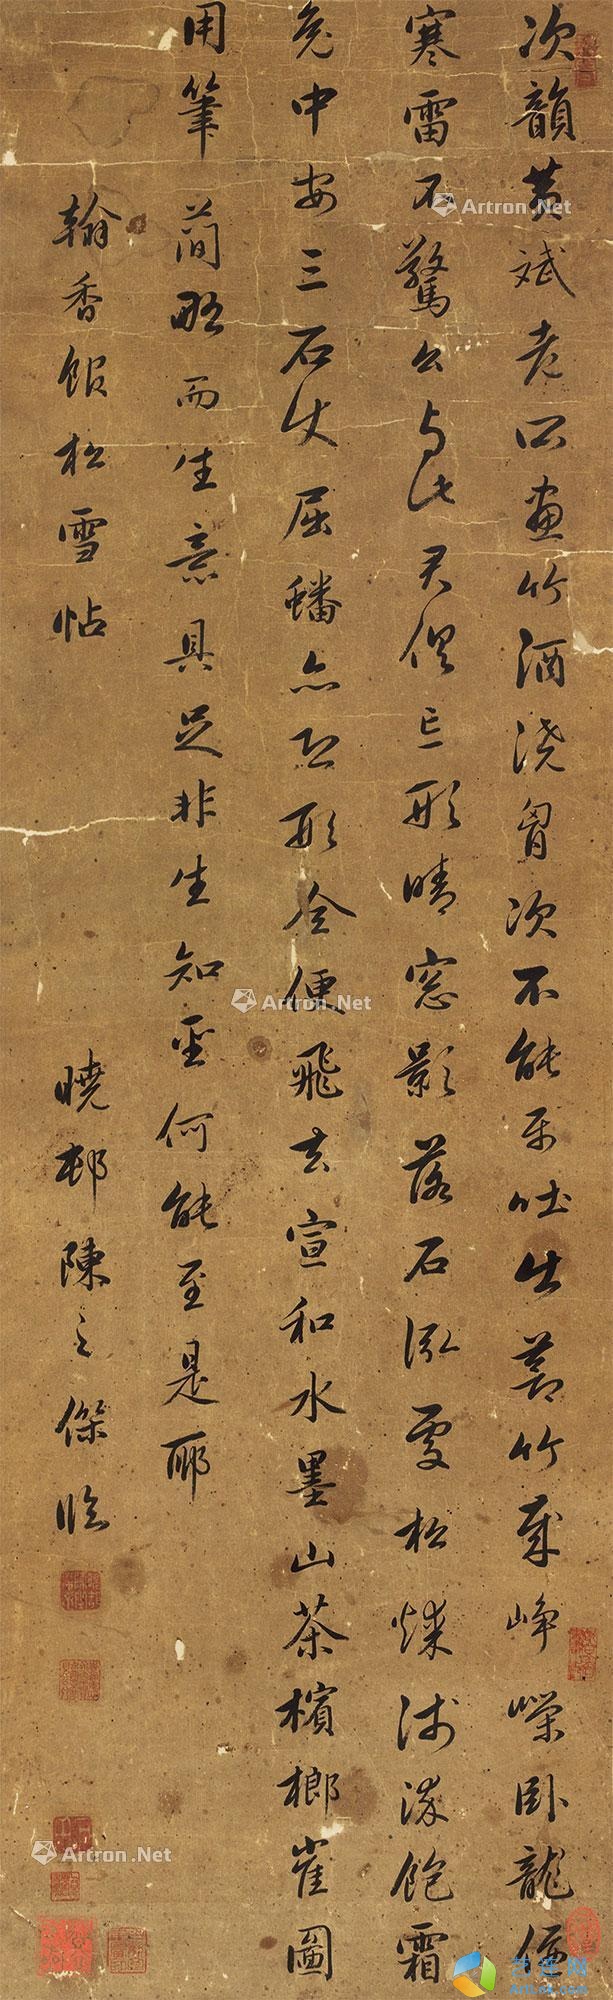 次韻黃斌老所畫竹酒澆胷次不能平吐出蒼竹歲崢嶸卧龍偃
寒雷不驚公與此君俱忘形晴窓影落石泓處松煤淺染飽霜
兔中安三石使屈蟠亦恐形全便飛去宣和水墨山茶檳榔雀圖
用筆簡略而生意具足非生知聖何能至是耶
翰香館松雪帖
曉邨陳之傑臨
Artron.Net
Artron.Net
Artron.Net
Artron.Net